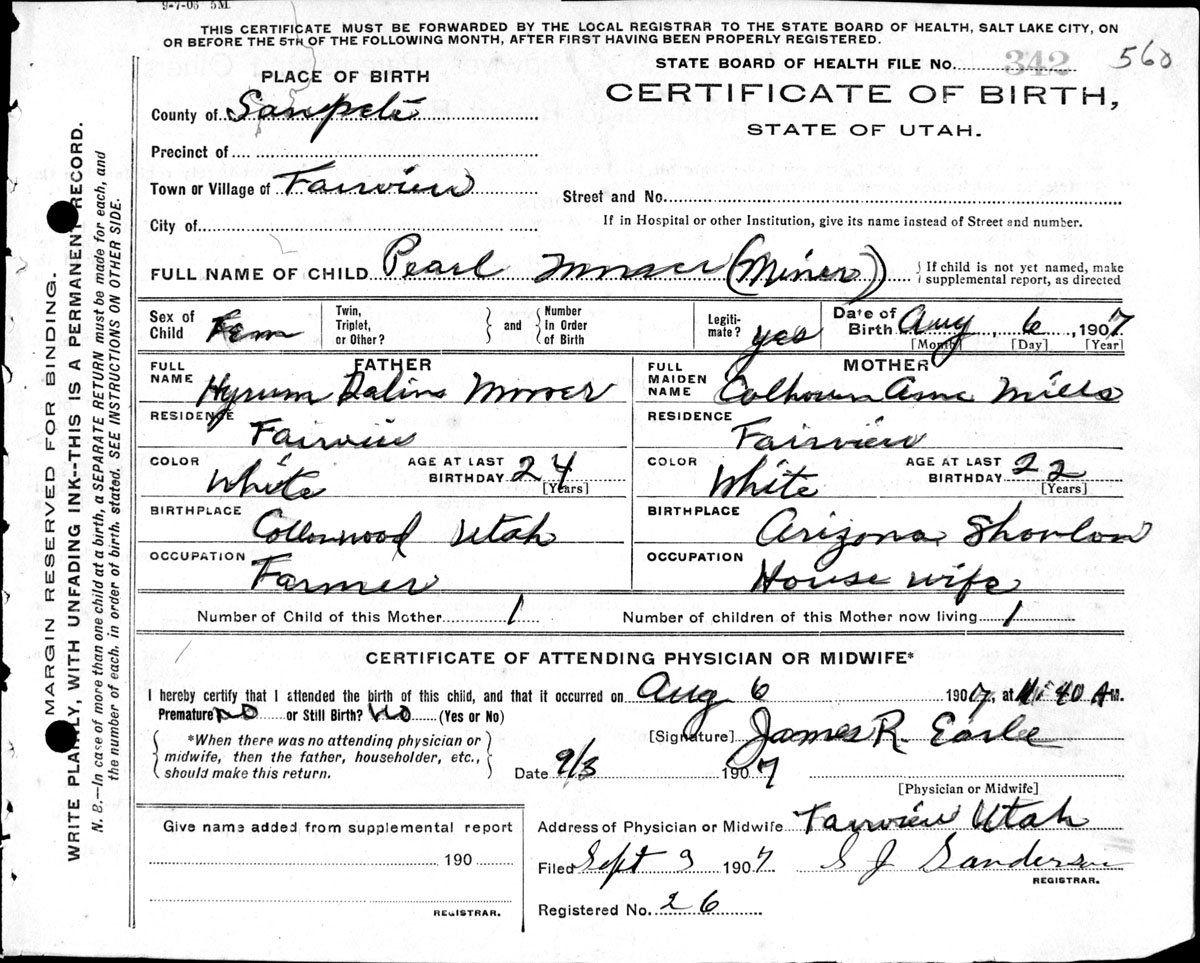 9-7-03 5M
THIS CERTIFICATE MUST BE FORWARDED BY THE LOCAL REGISTRAR TO THE STATE BOARD OF HEALTH, SALT LAKE CITY, ON
OR BEFORE THE 5TH OF THE FOLLOWING MONTH, AFTER FIRST HAVING BEEN PROPERLY REGISTERED.
STATE BOARD OF HEALTH FILE No. 342 560
PLACE OF BIRTH
CERTIFICATE OF BIRTH,
STATE OF UTAH.
County of Sanpete
Precinct of
Town or Village of Fairview
Street and No.
City of
If in Hospital or other Institution, give its name instead of Street and number.
FULL NAME OF CHILD Pearl (Miner) { If child is not yet named, make supplemental report, as directed
Sex of Child Fem Twin, Triplet, or Other? } and { Number in Order of Birth Legiti-mate? yes Date of Birth Aug 6, 1907
[Month] [Day] [Year]
FATHER
FULL NAME Hyrum
RESIDENCE Fairview
COLOR White AGE AT LAST BIRTHDAY 24 [Years]
BIRTHPLACE Cottonwood Utah
OCCUPATION Farmer
MOTHER
FULL MAIDEN NAME Calhoun Mills
RESIDENCE Fairview
COLOR White AGE AT LAST BIRTHDAY 22 [Years]
BIRTHPLACE Arizona Showlow
OCCUPATION House wife
Number of Child of this Mother 1 Number of children of this Mother now living 1
CERTIFICATE OF ATTENDING PHYSICIAN OR MIDWIFE*
I hereby certify that I attended the birth of this child, and that it occurred on Aug 6 1907, at 40 A M.
Premature no or Still Birth? No (Yes or No)
*When there was no attending physician or
midwife, then the father, householder, etc.,
should make this return.
[Signature] James R.
Date 9/3 1907
[Physician or Midwife]
Give name added from supplemental report
190
REGISTRAR.
Address of Physician or Midwife Fairview Utah
Filed Sept 3 1907 S J Sanderson
REGISTRAR.
Registered No. 26
MARGIN RESERVED FOR BINDING.
WRITE PLAINLY, WITH UNFADING INK--THIS IS A PERMANENT RECORD.
N. B.—In case of more than one child at a birth, a SEPARATE RETURN must be made for each, and
the number of each, in order of birth, stated. SEE INSTRUCTIONS ON OTHER SIDE.